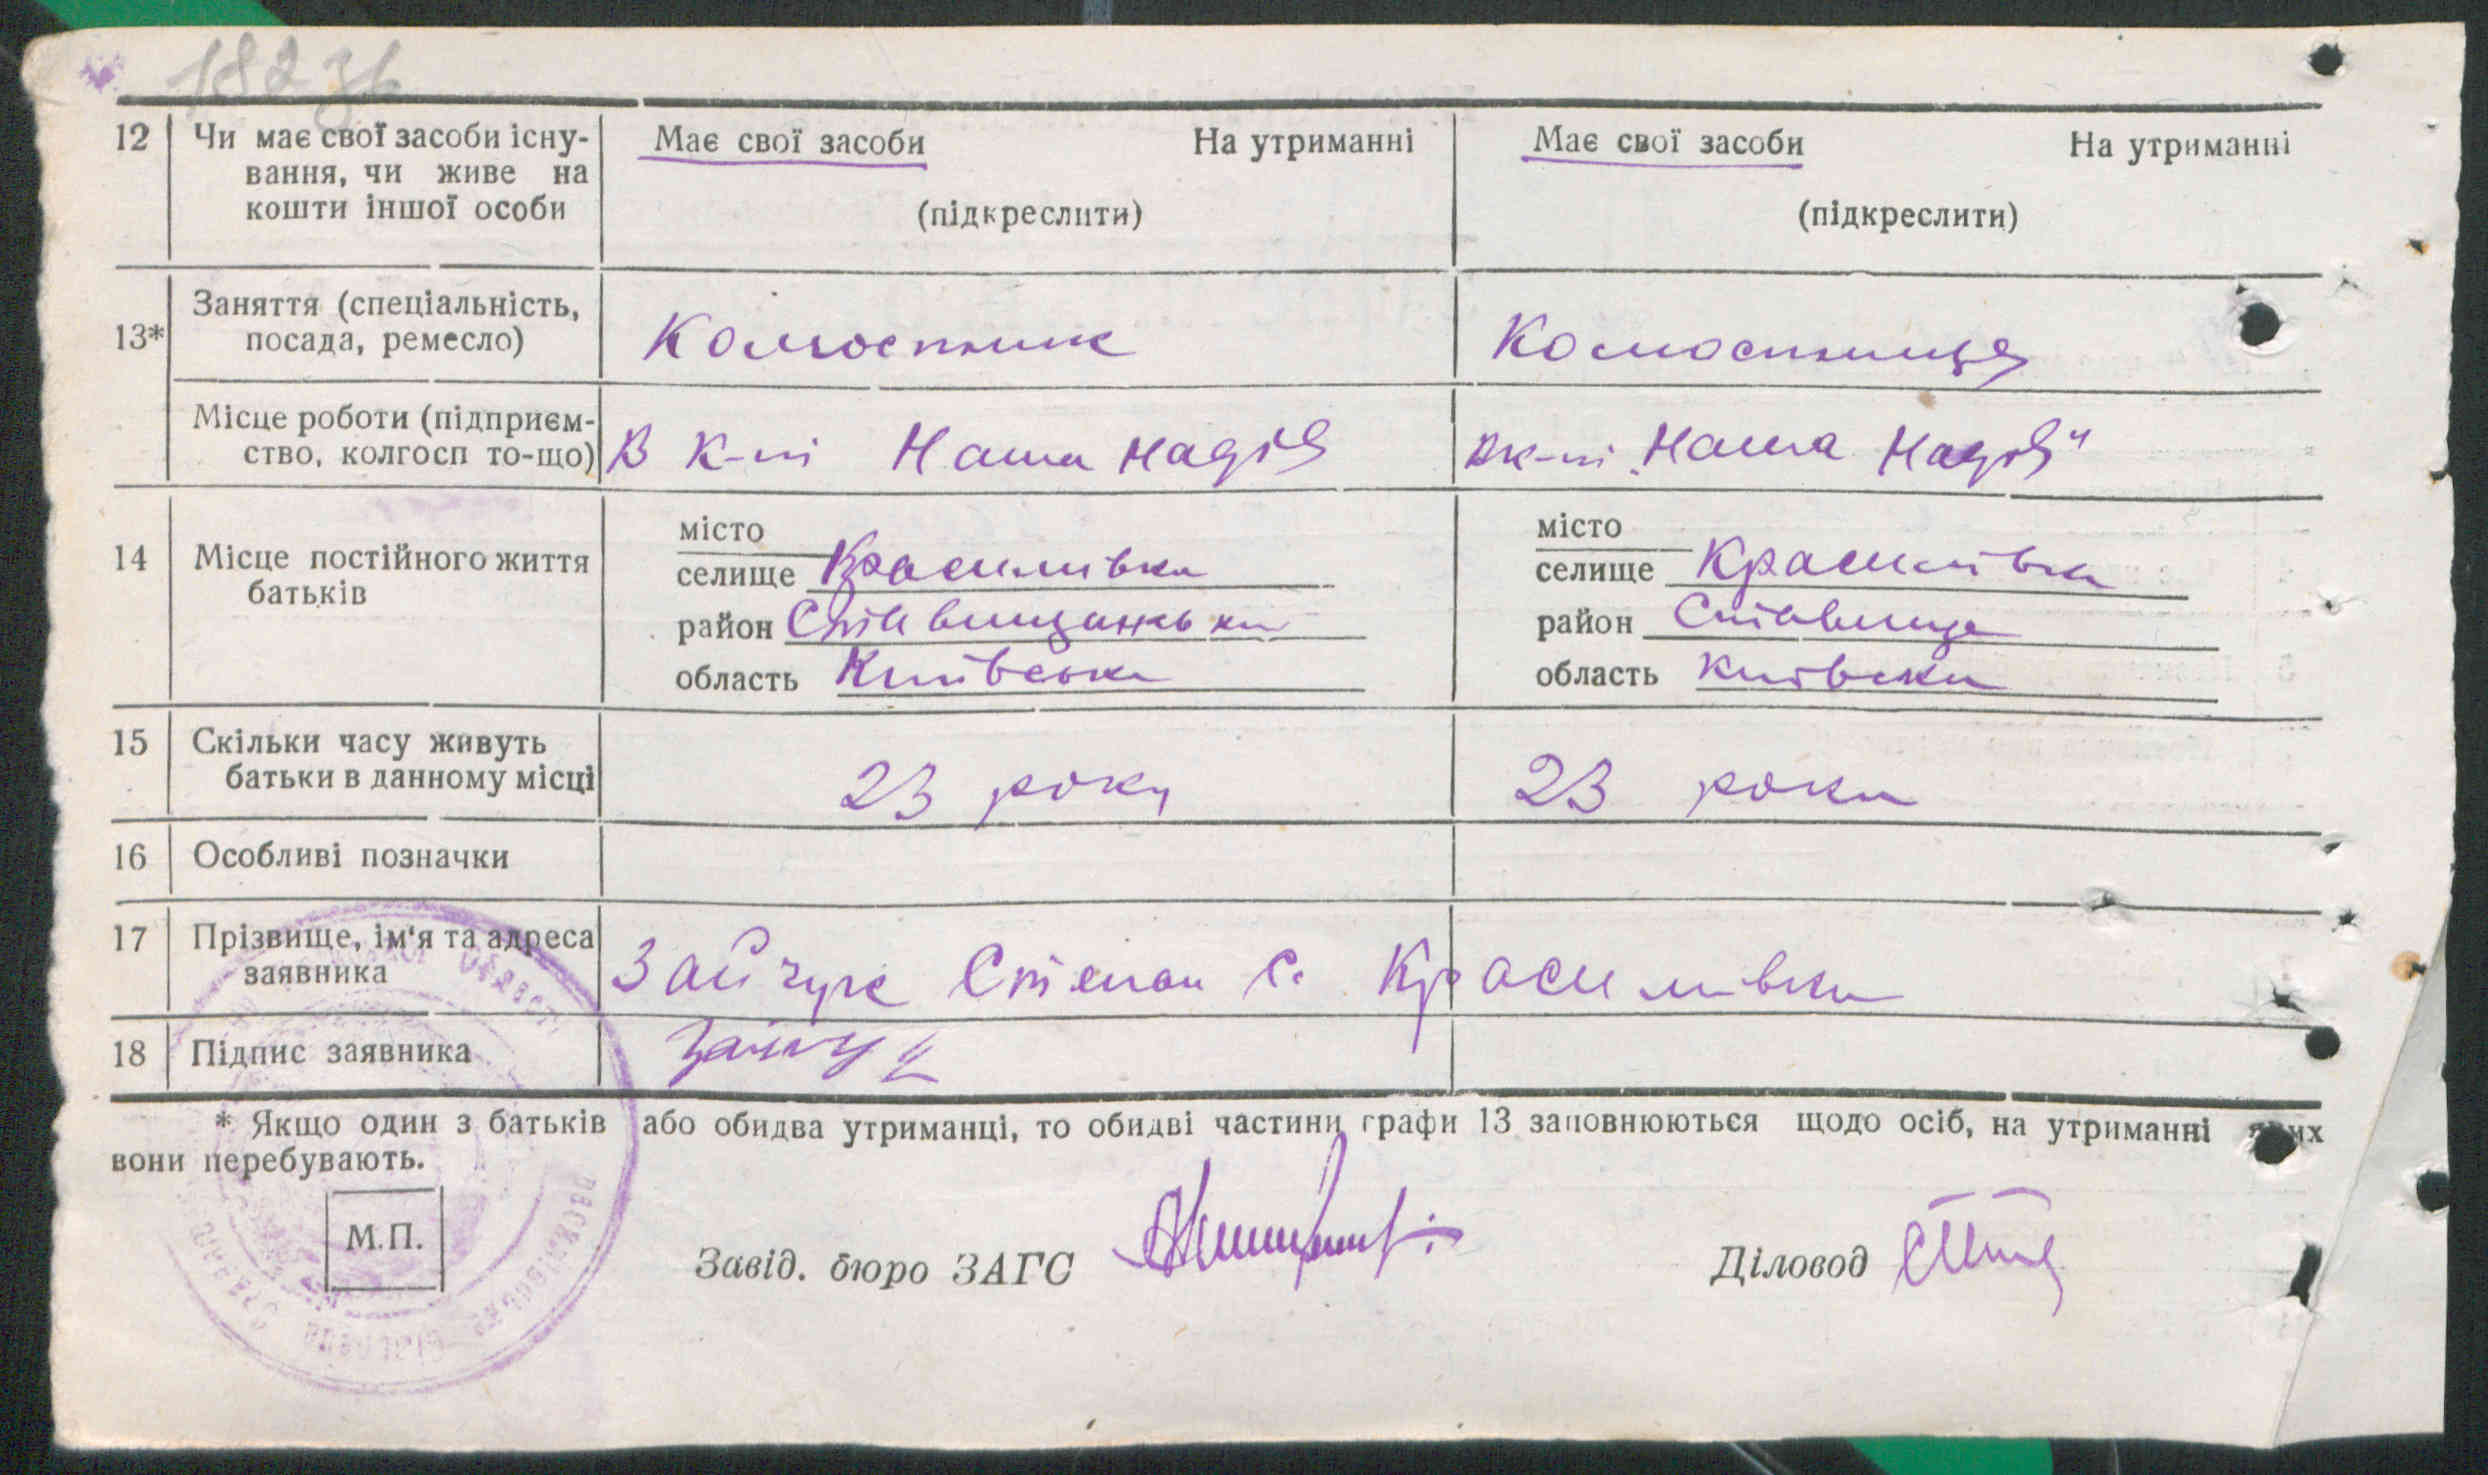 18236
12 Чи має свої засоби існу- Має свої засоби На утриманні Має свої засоби На утриманні
вання, чи живе на
кошти іншої особи (підкреслити) (підкреслити)
Заняття (спеціальність,
13* посада, ремесло) Колгоспник Колгоспниця
Місце роботи (підприєм-
ство, колгосп то-що) В к-пі Наша надія в к-пі „Наша Надія"
місто місто
14 Місце постійного життя селище Красилівка селище Красилівка
батьків район Ставищанськи район Ставище
область Київська область Київська
15 Скільки часу живуть
батьки в данному місці 23 року 23 роки
16 Особливі позначки
17 Прізвище, ім'я та адреса
заявника Зайчук Степан с. Красилівка
18 Підпис заявника Зайчук
* Якщо один з батьків або обидва утриманці, то обидві частини графи 13 заповнюються щодо осіб, на утриманні яких
вони перебувають.
М.П.
Завід. бюро ЗАГС Діловод